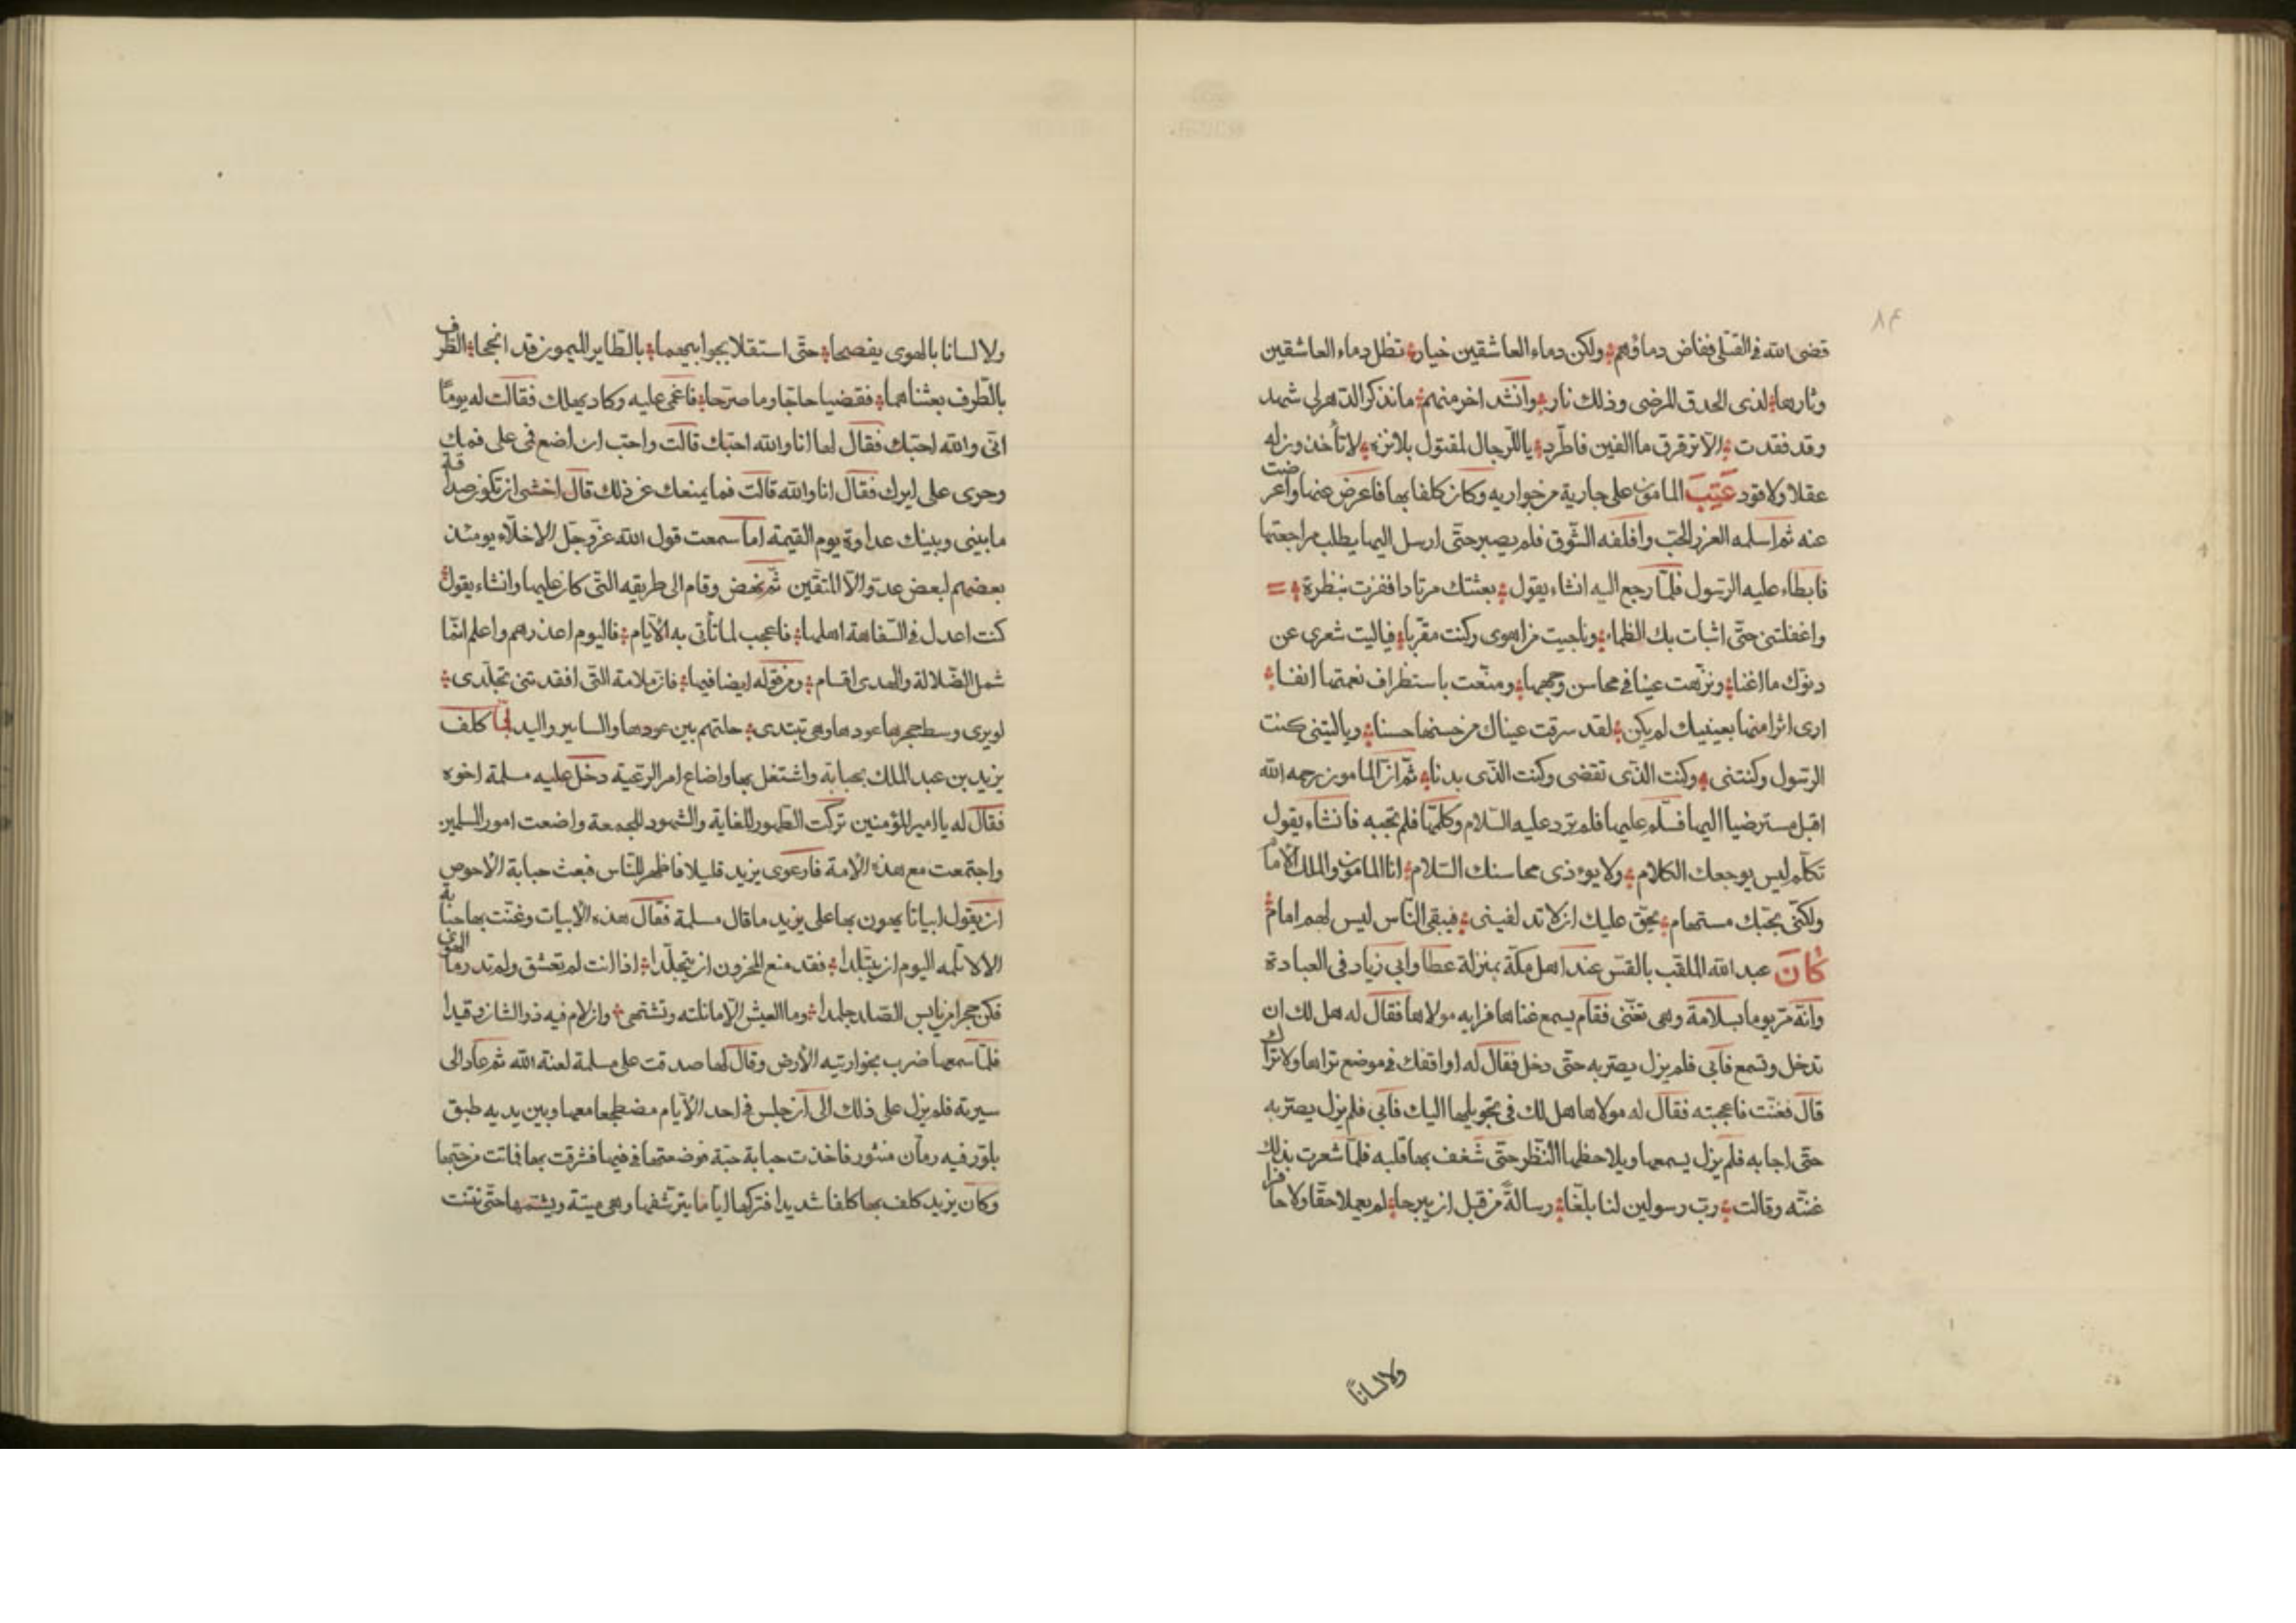 ٨٤
قضى الله فى القتلى ففاض دماؤهم ولكن دماء العاشقين خيار تظل دماء العاشقين
وثارها لذى الحدق المرضى وذلك نار وانشد اخر منهم ما نذكر الدهر لى شهد
وقد فقدت الا ترقرق ما الفين فاطرد ياللرجال لمقتول بلا ترة لا تأخذون له
عقلا ولا قود عَتِبَ المامون على جارية من جواريه وكان كلفا بها فاعرض عنها واعرضت
عنه ثم اسلمه العز للحب واقلقه الشوق فلم يصبر حتى ارسل اليها يطلب مراجعتها
فابطاء عليه الرسول فلما رجع اليه انشاء يقول بعثتك مرتادا ففزت بنظرة
واغفلتنى حتى اثبات بك الظماء وناجيت من اهوى وكنت مقربا فياليت شعرى عن
دنوك ما اغنا ونزهت عينا فى محاسن وجهها ومتعت باستظراف نغمتها اذنا
ارى اثرا منها بعينيك لم يكن لقد سرقت عيناك من حسنها حسنا وياليتنى كنت
الرسول وكنتنى وكنت الذى تقضى وكنت الذى يدنا ثم ان المامون رحمه الله
اقبل مسترضيا اليها فسلم عليها فلم ترد عليه السلام وكلمها فلم تجبه فانشاء يقول
تكلم ليس يوجعك الكلام ولا يوءذى محاسنك السلام انا المامون والملك الامام
ولكنى بحبك مستهام يحق عليك ان لا تد لفينى فيبقى الناس ليس لهم امام
كَانَ عبد الله الملقب بالقس عند اهل مكة بمنزلة عطا وابى زياد فى العبادة
وانه مر يوما بسلامة وهى تغنى فقام يسمع غناها فرايه مولاها فقال له هل لك ان
تدخل وتسمع فابى فلم يزل يصتر به حتى دخل فقال له اواقفك فى موضع تراها ولا تراك
قال فغنت فاعجبته فقال له مولاها هل لك فى تحويلها اليك فابى فلم يزل يصتر به
حتى اجابه فلم يزل يسمعها ويلاحظها النظر حتى شغف بها قلبه فلما شعرت بذلك
غنته وقالت رب رسولين لنا بلغا رسالة من قبل ان يبرحا لم يعملا خفا ولا حافرا
ولا لسانا
ولا لسانا بالهوى يفصحا حتى استقلا بجوابيهما بالطاير الميمون قد انجحا الطرف
بالطرف بعثناهما فقضيا حاجا وما صرحا فاغمى عليه وكاد يهلك فقالت له يوما
انى والله احبك فقال لها انا والله احبك قالت واحب ان اضع فمى على فمك
وحرى على ايرك فقال انا والله قالت فما يمنعك عن ذلك قال اخشى ان تكون صداقة
ما بينى وبينك عداوة يوم القيمة اما سمعت قول الله عز وجل الاخلاء يومئذ
بعضهم لبعض عدو الا المتقين ثم نهض وقام الى طريقه التى كان عليها وانشاء يقول
كنت اعدل فى السفاهة اهلها فاعجب لما تأتى به الايام فاليوم اعذرهم واعلم انما
شمل الضلالة والهدى اقسام ومن قوله ايضا فيها فان سلامة التى افقدتنى تجلدى
لو يرى وسط حجرها عودها وهى تبتدى خلتهم بين عودها والساير واليد لما كلف
يزيد بن عبد الملك بحبابة واشتغل بها واضاع امر الرعية دخل عليه مسلمة اخوه
فقال له يا امير المؤمنين تركت الظهور للغاية والشهود للجمعة واضعت امور المسلمين
واجتمعت مع هذه الامة فارعوى يزيد قليلا فاظهر للناس فبعث حبابة الاحوص
ان يقول ابياتا يهون بها على يزيد ما قال مسلمة فقال هذه الابيات وغنت بها حبابة
الا لا تلمه اليوم ان يتبلدا فقد منع المحزون ان يتجلدا اذا انت لم تعشق ولم تدر ما الهوى
فكن حجرا من يابس الصلد جلمدا وما العيش الا ما تلته وتشتهى وان لام فيه ذو الشان وقيدا
فلما سمعها ضرب بخوارتيه الارض وقال لها صدقت على مسلمة لعنة الله ثم عاد الى
سيرته فلم يزل على ذلك الى ان جلس فى احد الايام مضطجعا معها وبين يديه طبق
بلور فيه رمان منثور فاخذت حبابة حبة فوضعتها فى فيها فشرقت بها فماتت من حينها
وكان يزيد كلف بها كلفا شديدا فتركها اياما يترشفها وهى ميتة ويشمها حتى نتنت